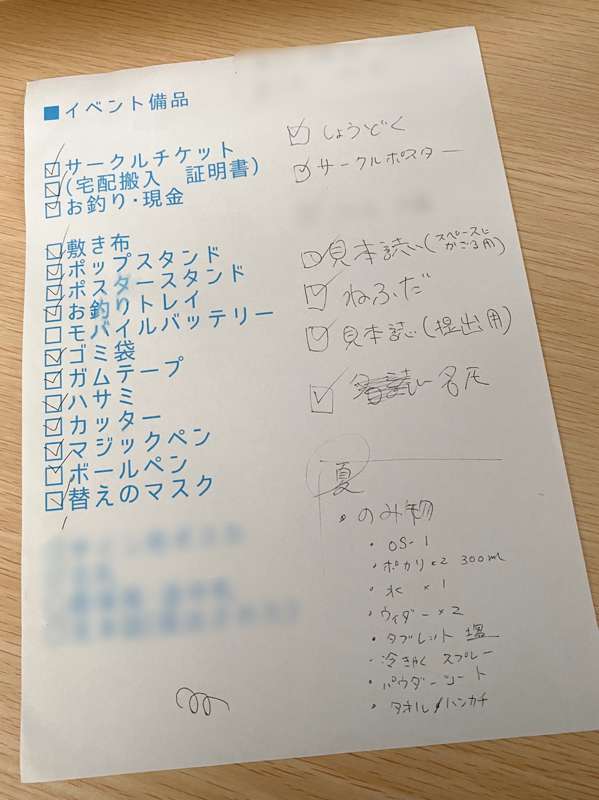 ■イベント備品
サークルチケット
(宅配搬入 証明書)
お釣り・現金
敷き布
ポップスタンド
ポスタースタンド
お釣りトレイ
モバイルバッテリー
ゴミ袋
ガムテープ
ハサミ
カッター
マジックペン
ボールペン
替えのマスク
しょうどく
サークルポスター
見本誌(スペースに
かざる用)
ねふだ
見本誌(提出用)
名尺
夏
・のみ物
・OS-1
・ポカリ×2 300ml
・水 ×1
・ウィダー×2
・タブレット 塩
・冷きゃく スプレー
・パウダーシート
・タオル/ハンカチ